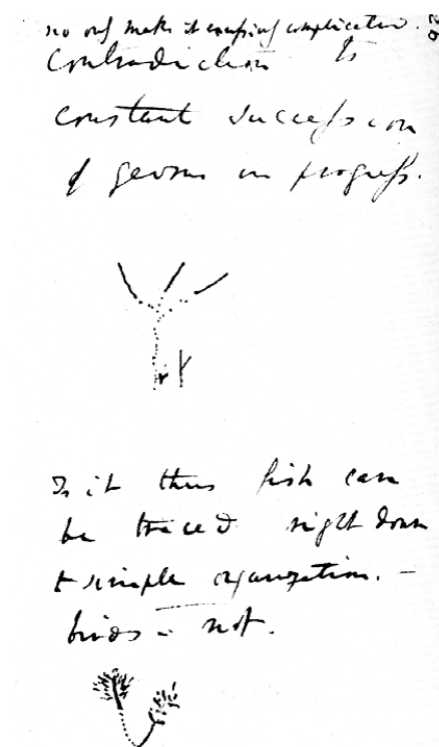 no only makes it excessively complicated. 26
contradiction to
constant succession
of germs in progress.
Is it thus fish can
be traced right down
to simple organization. –
birds – not.